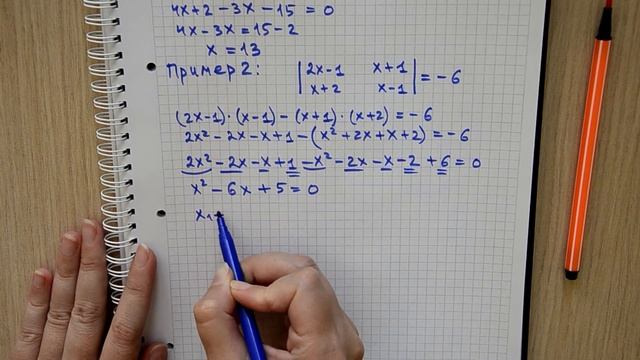 4x+2-3x-15=0
4x-3x=15-2
x=13
Пример 2: |2x-1 x+1| = -6
|x+2 x-1|
(2x-1)·(x-1)-(x+1)·(x+2)=-6
2x²-2x-x+1-(x²+2x+x+2)=-6
2x²-2x-x+1-x²-2x-x-2+6=0
x²-6x+5=0
x₁